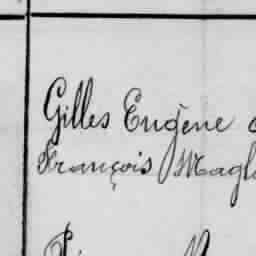 Gilles Eugène
François Magl